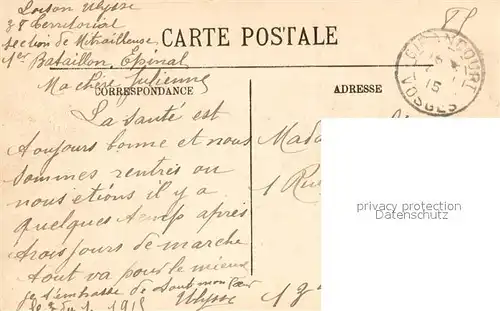 Loison Ulysse
37 Territorial
section de Mitrailleuse
1er Bataillon, Epinal
CARTE POSTALE
Ma chère Julienne
CORRESPONDANCE
ADRESSE
VOSGES
15
La santé est
toujours bonne et nous
sommes rentrés ou
nous etions il y a
quelques temps après
trois jours de marche
tout va pour le mieux
je t'embrasse de tout mon cœur
Ulysse
1915
Mada
1 Rue
privacy protection
Datenschutz